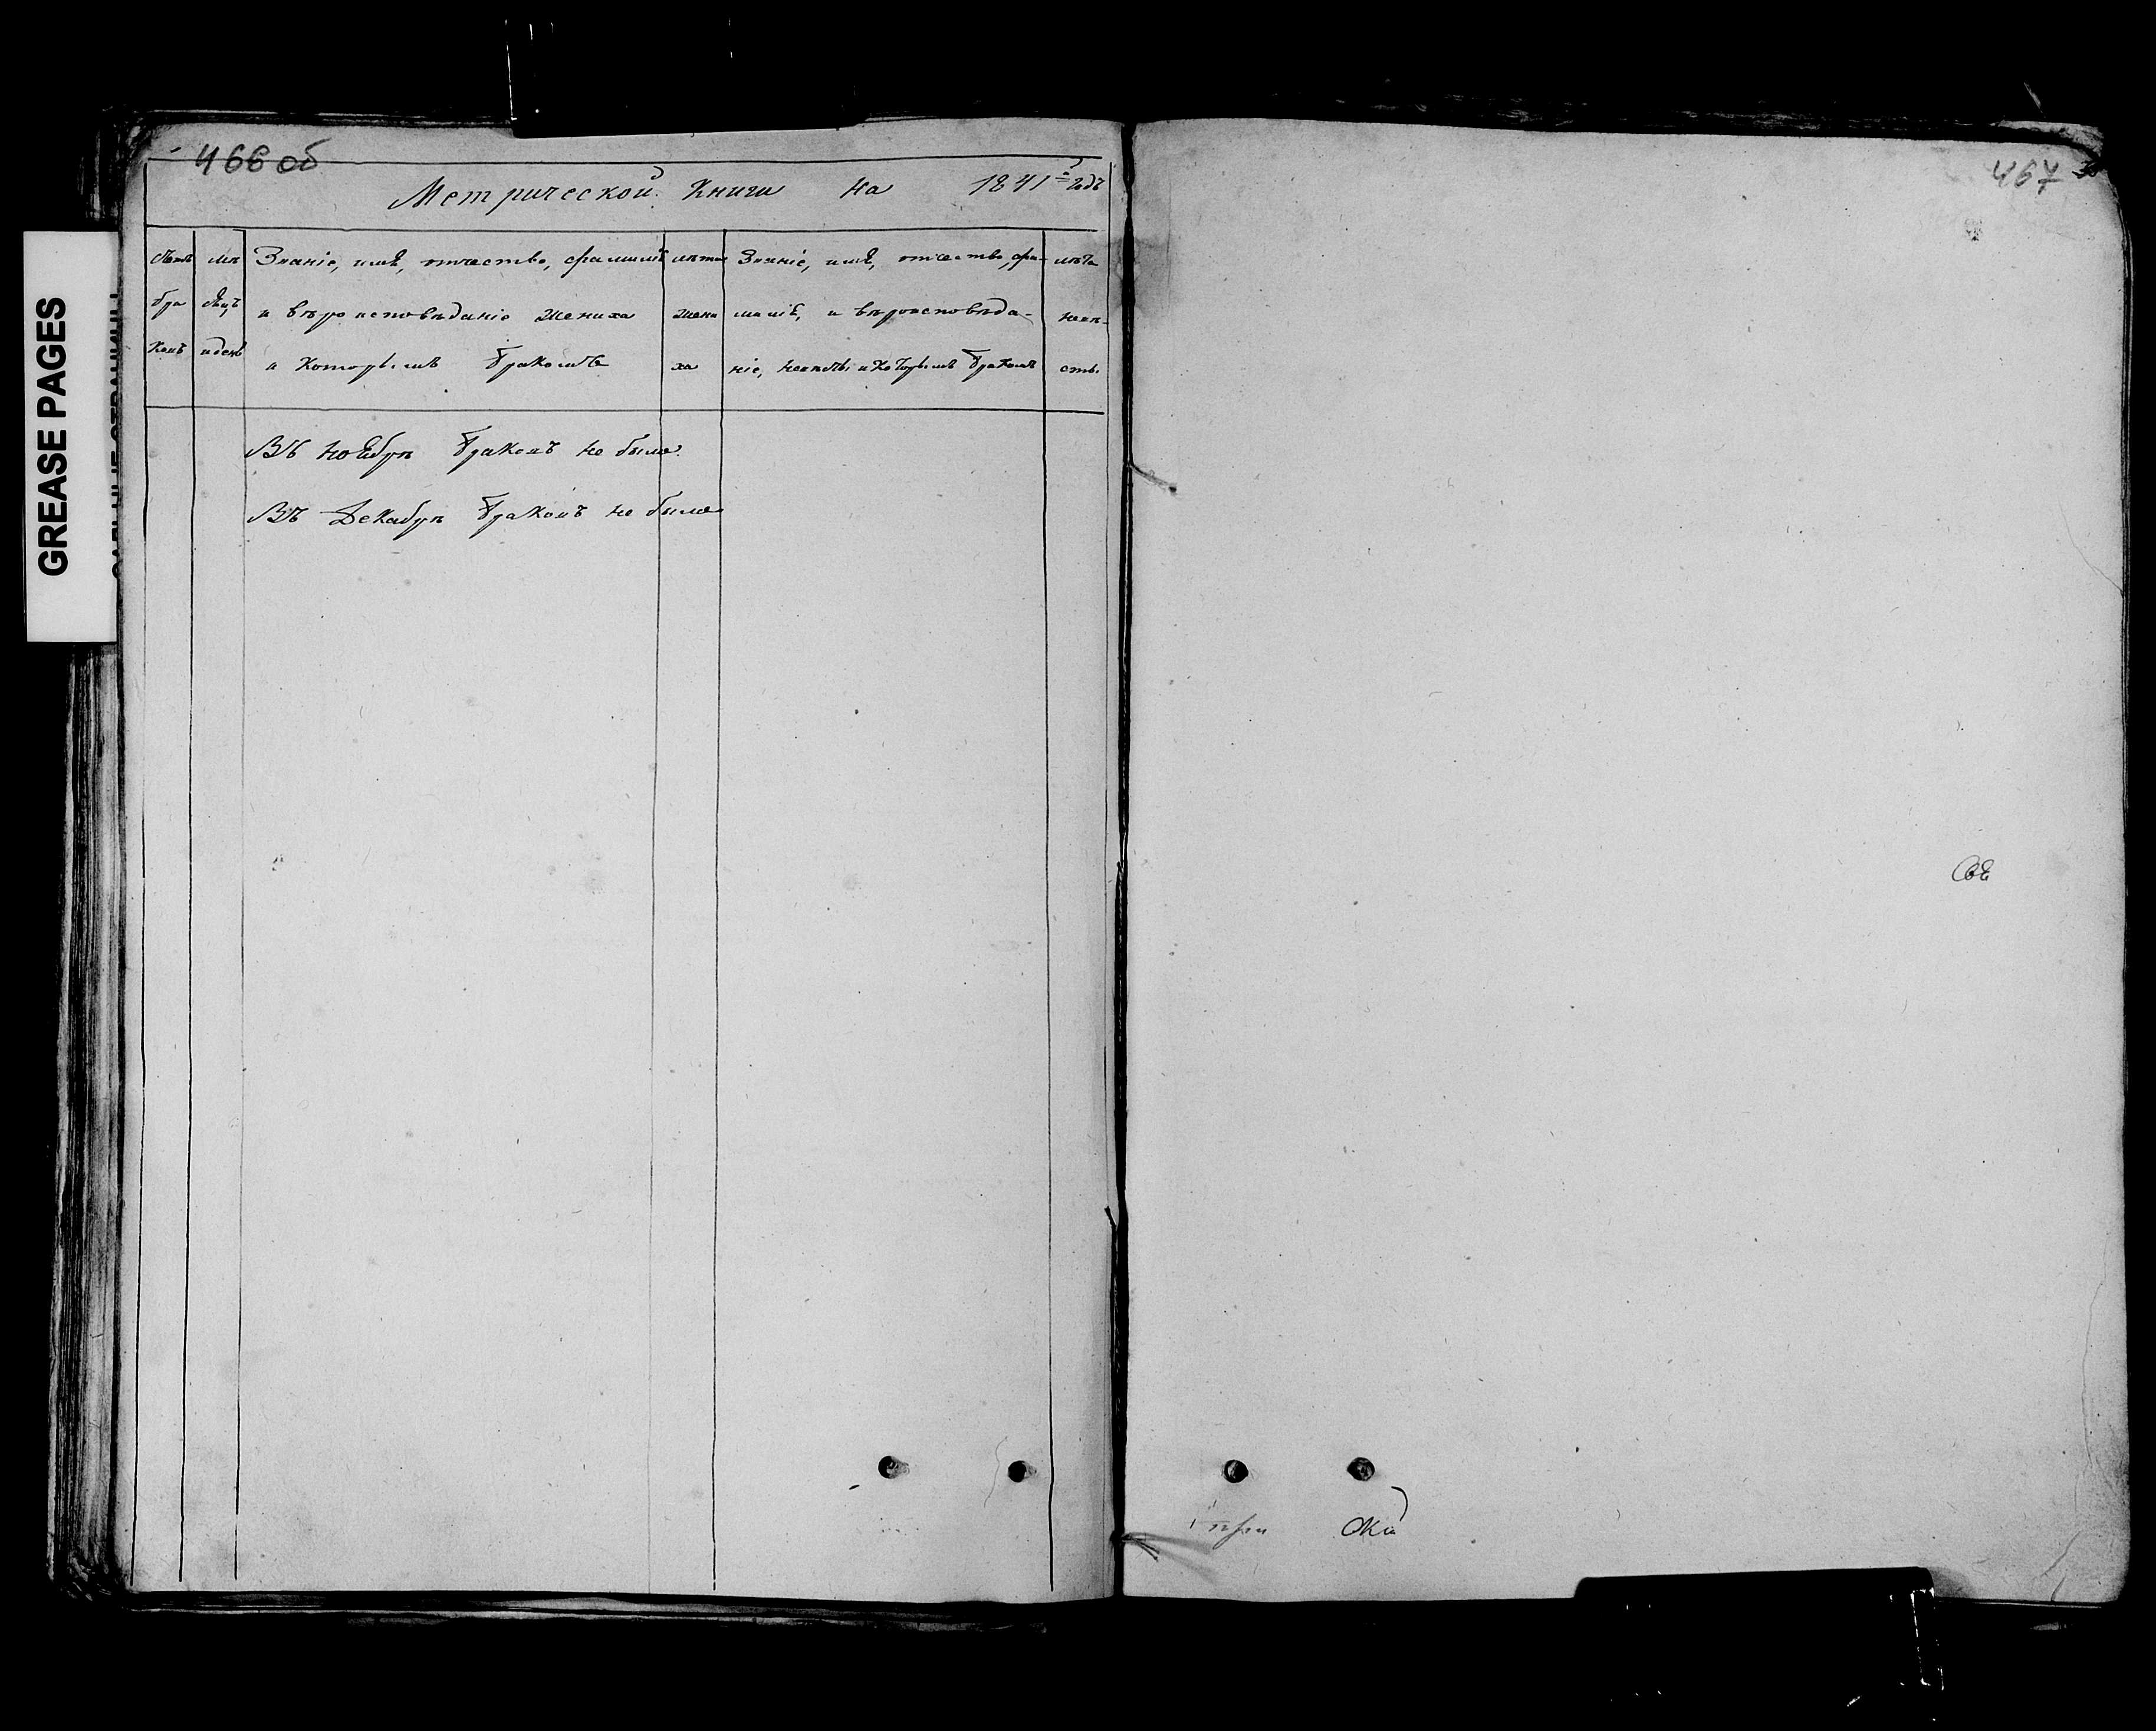 466 об
Метрической Книги на 1841й годъ
Счетъ
бра
ковъ
мѣ
сяцъ
и день
Званіе, имя, отчество, фамилія
и вѣроисповѣданіе жениха
и которымъ бракомъ
лѣта
жени
ха
Званіе, имя, отчество, фа-
милія, и вѣроисповѣда-
ніе, невѣсты и которымъ бракомъ
лѣта
невѣ-
сты
Въ ноябрѣ браковъ не было.
Въ Декабрѣ браковъ не было
467
GREASE PAGES